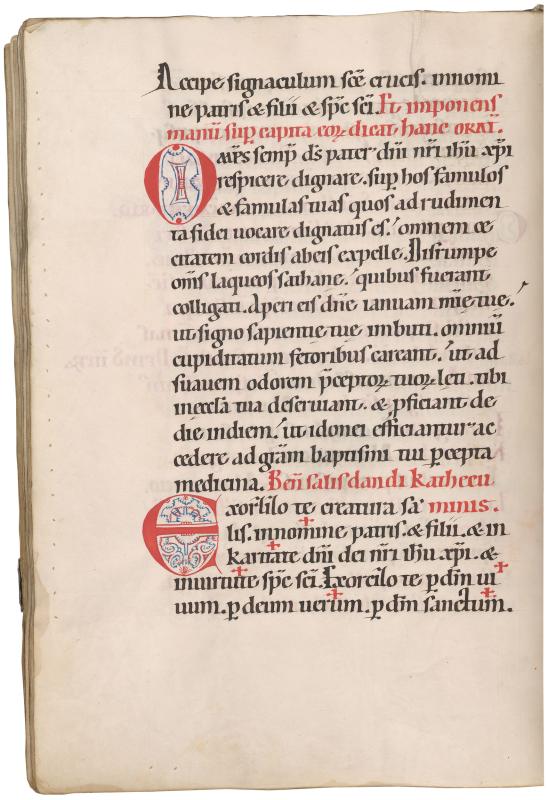 Accipe signaculum scē crucis. innomi
ne patris & filii & spc̄ sci. Et imponens
manū sup capita eoꝝ dicat hanc orāt̄.
O m̄ps semp̄ ds̄ pater dn̄i nr̄i ihū xp̄i
respicere dignare. sup hos famulos
& famulas tuas quos ad rudimen
ta fidei uocare dignatus es. omnem ce
citatem cordis ab eis expelle. Disrumpe
om̄s laqueos sathane. quibus fuerant
colligati. Aperi eis dn̄e ianuam mīe tue.
ut signo sapientie tue imbuti. omniū
cupiditatum fetoribus careant. ut ad
suauem odorem p̄ceptoꝝ tuoꝝ leti. tibi
in eccl̄a tua deseruiant. & ꝓficiant de
die indiem. ut idonei efficiantur ac
cedere ad grām baptismi tui ꝑcepta
medicina. Ben̄ salis dandi kathecu
Exorcizo te creatura sa minis.
lis. innomine patris. & filii. & in
karitate dn̄i dei nr̄i ihū xp̄i. &
inuirtute spc̄ sci. Exorcizo te ꝑ dm̄ ui
uum. ꝑ deum uerum. ꝑ dm̄ sanctum.